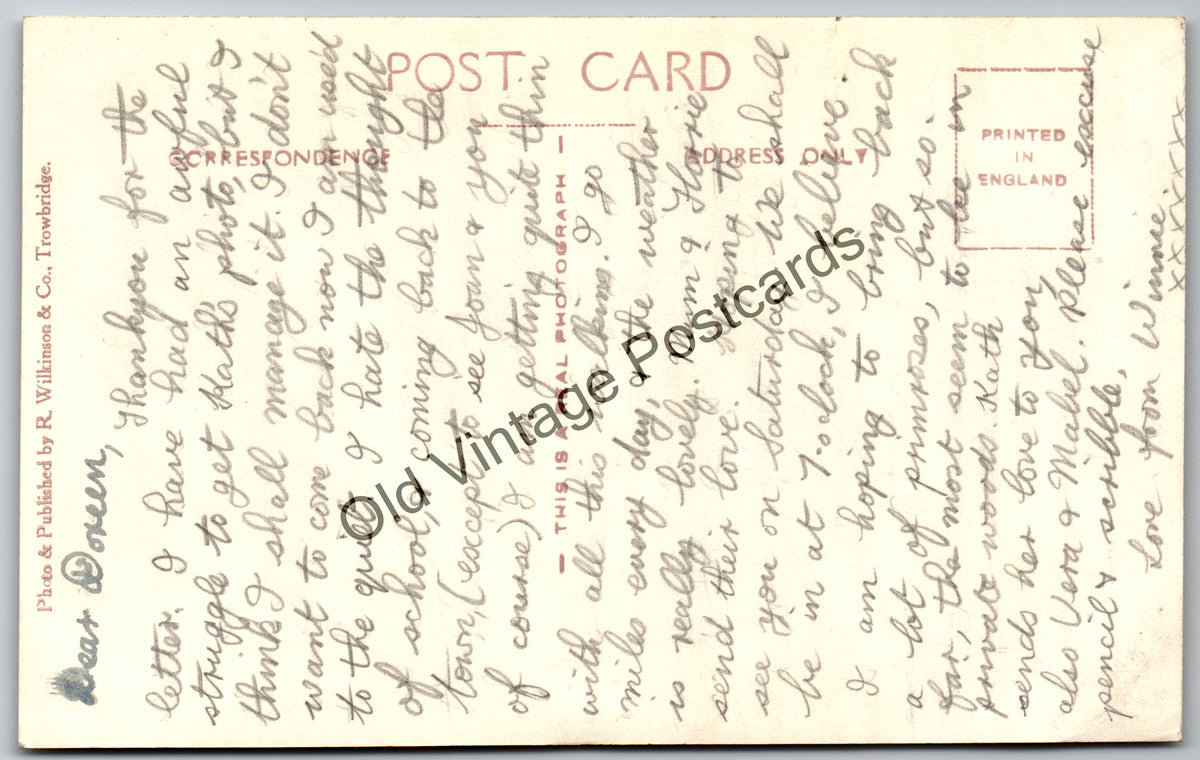 POST CARD
CORRESPONDENCE
ADDRESS ONLY
PRINTED
IN
ENGLAND
— THIS IS A REAL PHOTOGRAPH —
Photo & Published by R. Wilkinson & Co., Trowbridge.
Dear Doreen,
Thankyou for the
letter. I have had an awful
struggle to get Kath's photo, but I
think I shall manage it. I don't
want to come back now I am used
to the quiet. I hate the thought
of school, & coming back to the
town, (except to see Joan & you
of course) I am getting quite thin
with all this walking. I go
miles every day, & the weather
is really lovely. Mum & Florrie
send their love. Hoping to
see you on Saturday. We shall
be in at 7-oclock, I believe.
I am hoping to bring back
a lot of primroses, but so.
far, the most seem to be in
private woods. Kath
sends her love to you,
also Vera & Mabel. Please excuse
pencil & scribble,
Love from Winnie
xxxxxxx
Old Vintage Postcards